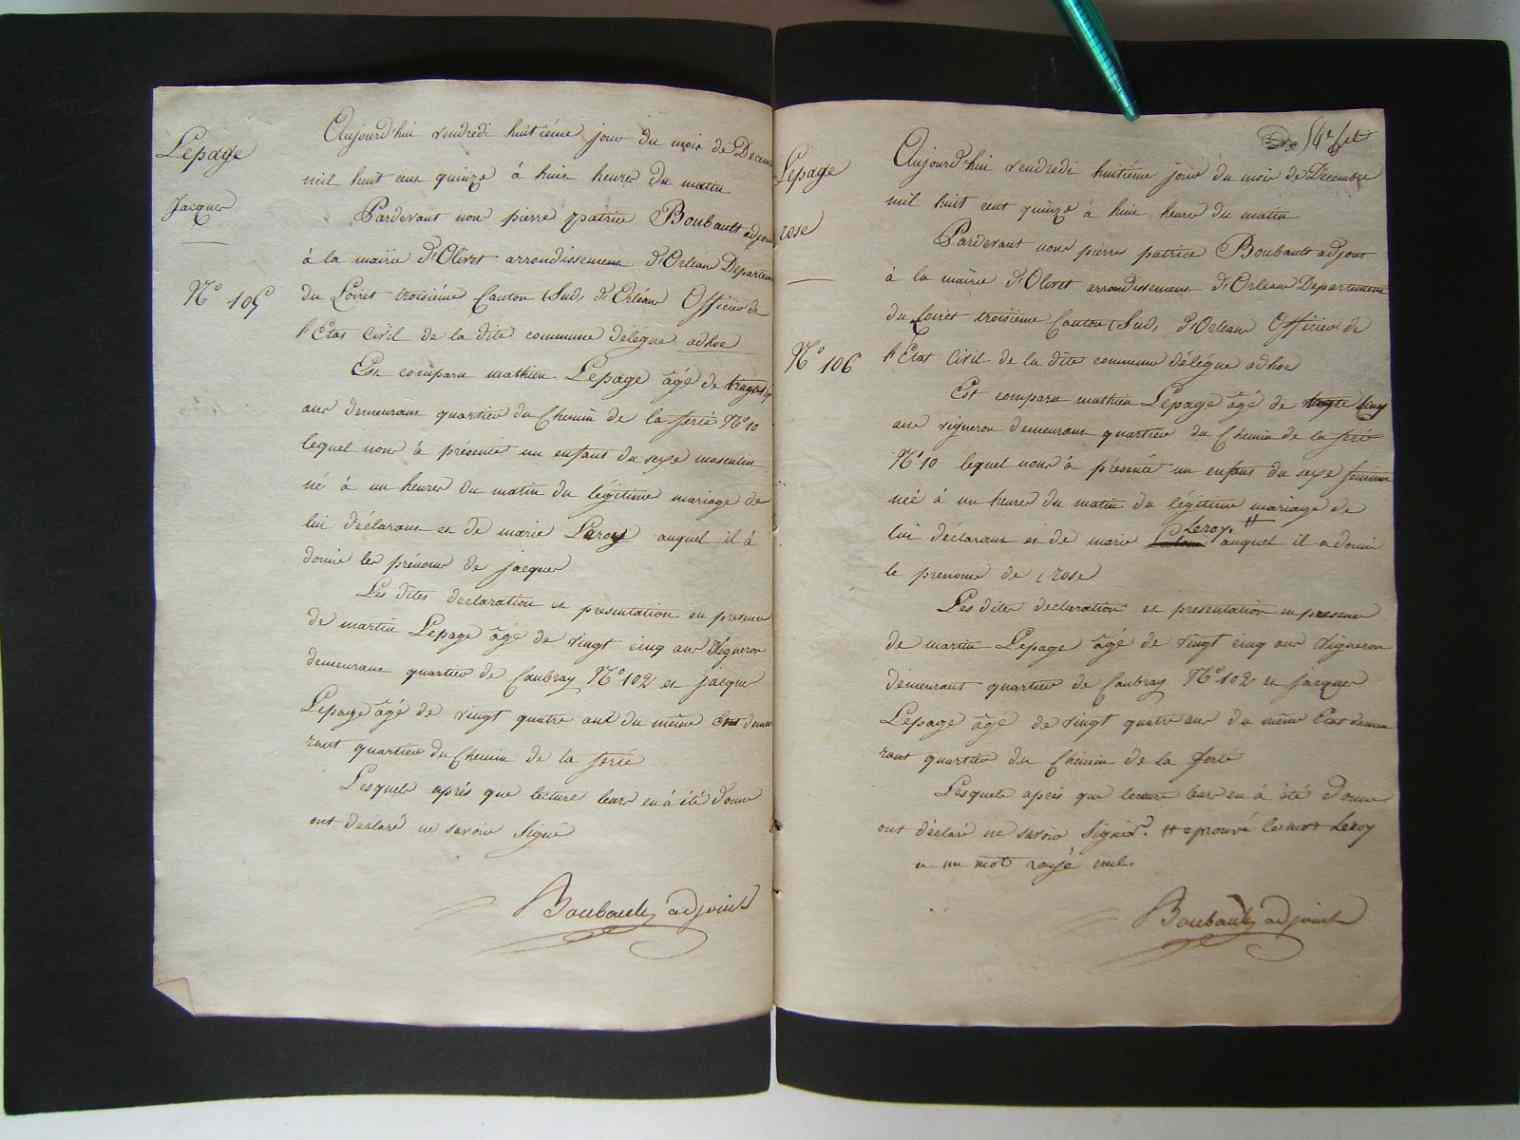 Lepage
Jacques
N.o 105
Aujourd'hui vendredi huitiéme jour du mois de Decem
mil huit cent quinze à huit heures du matin
Pardevant nous pierre patrice Boubault adjoint
à la mairie d'Olivet arrondissement d'Orléans Departem
du Loiret troisiéme Canton (Sud) d'Orléans Officier de
l'Etat Civil de la dite commune délégué adhoc
Est comparu mathieu Lepage âgé de
ans demeurant quartier du Chemin de la ferté N.o 10
lequel nous à présenté un enfant du sexe masculin
né à un heures du matin du légitime mariage de
lui déclarant et de marie Leroy auquel il à
donné les prénoms de jacques
Les dites déclaration et présentation en présence
de martin Lepage âgé de vingt cinq ans Vigneron
demeurant quartier de Caubray N.o 102 et jacques
Lepage âgé de vingt quatre ans du même Etat demeu
rant quartier du Chemin de la ferté
Lesquels aprés que lecture leurs en à été donné
ont déclaré ne savoir signé
Boubault adjoint
54.e
Lepage
rose
N.o 106
Aujourd'hui vendredi huitiéme jour du mois de Decembre
mil huit cent quinze à huit heures du matin
Pardevant nous pierre patrice Boubault adjoint
à la mairie d'Olivet arrondissement d'Orléans Departement
du Loiret troisiéme Canton (Sud) d'Orleans Officier de
l'Etat Civil de la dite commune délégué adhoc
Est comparu mathieu Lepage âgé de
ans vigneron demeurant quartier du Chemin de la ferté
N.o 10 lequel nous à présenté un enfant du sexe féminin
née à un heures du matin du légitime mariage de
lui déclarant et de marie Leroy # auquel il a donné
le prenoms de rose
Les dites déclaration et presentation en presence
de martin Lepage âgé de vingt cinq ans Vigneron
demeurant quartier de Caubray N.o 102 et jacques
Lepage âgé de vingt quatre ans du même Etat demeu
rant quartier du Chemin de la ferté
Lesquels aprés que lecture leurs en à été donné
ont déclaré ne savoir signer. # aprouvé le mot Leroy
et un mot rayé nul.
Boubault adjoint